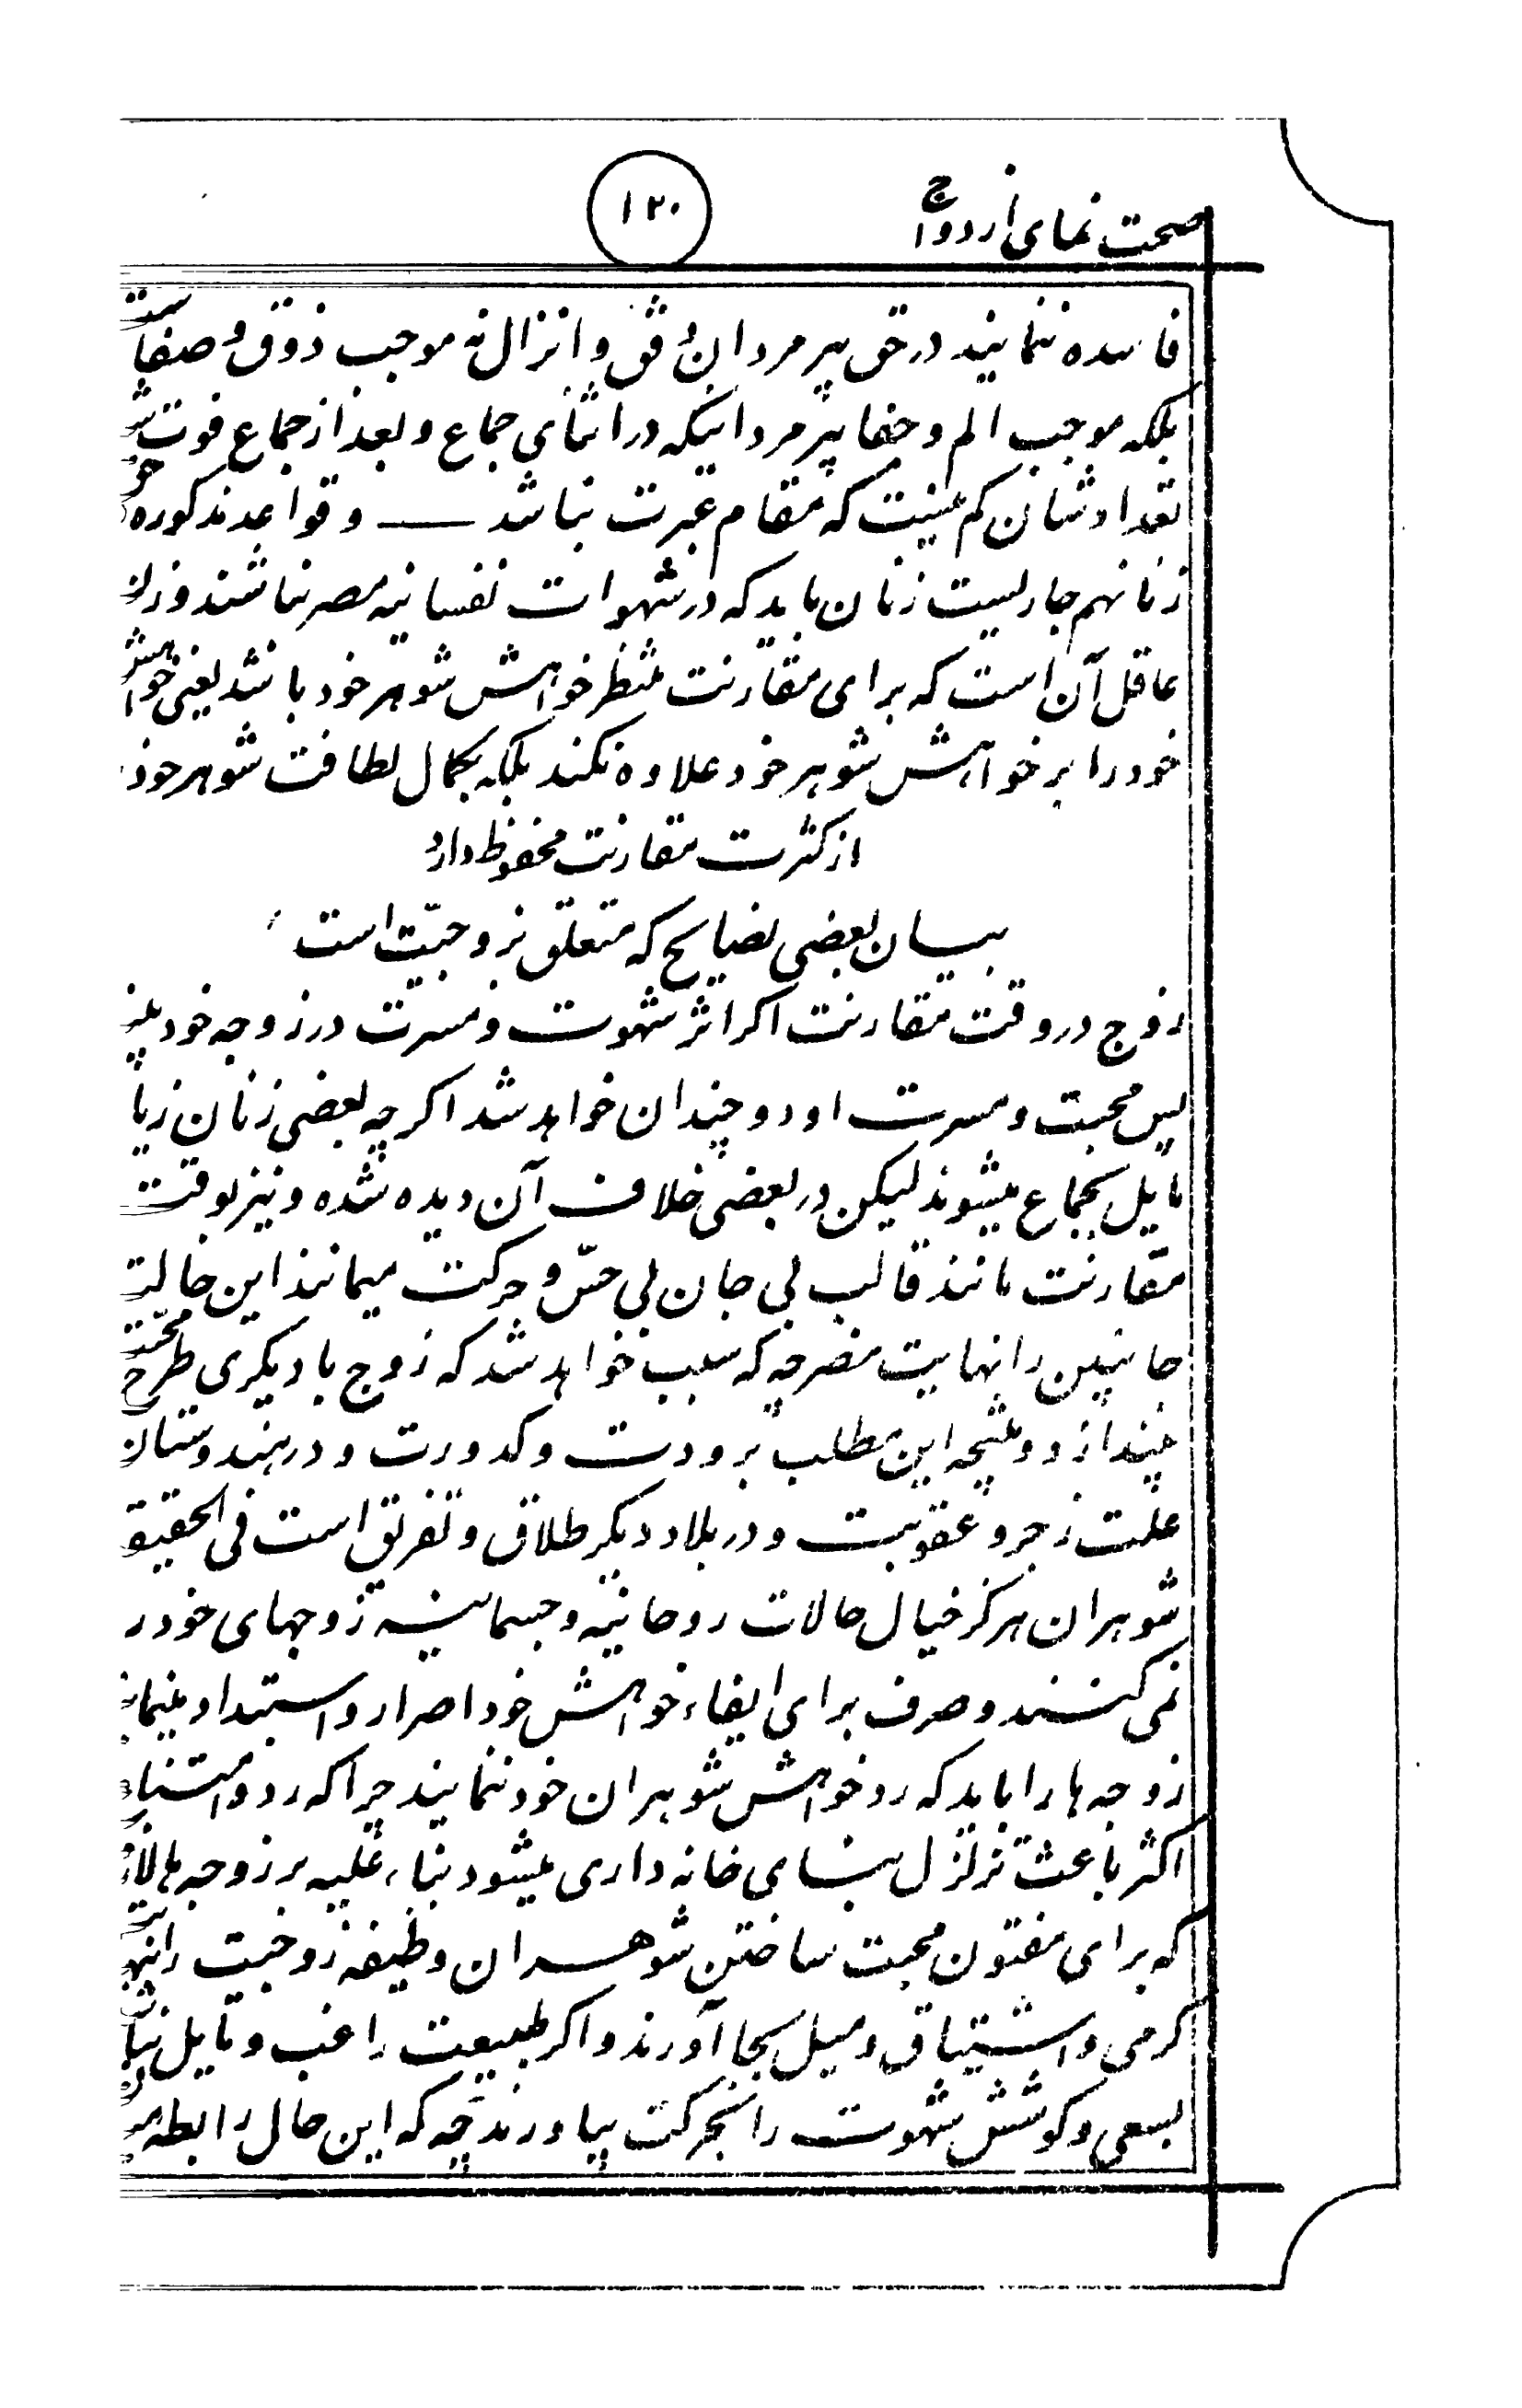 صحت نمای ازدواج
۱۲۰
فاسده ننمایند در حق پیر مردان دفق و انزال نه موجب ذوق و صفا ست
بلکه موجب الم و جفا پیر مردانیکه در اثنای جماع و بعد از جماع فوت
تعداد شان کم نیست که مقام عبرت نباشد — و قواعد مذکوره
زنانهم جاریست زنان باید که در شهوات نفسانیه مصر نباشند و زن
عاقل آن است که برای مقارنت منتظر خواهش شوهر خود باشد یعنی خواهش
خود را بر خواهش شوهر خود علاوه نکند بلکه بکمال لطافت شوهر خود
از کثرت مقارنت محفوظ دارد
بیان بعضی نصایح که متعلق بزوجیّت است
زوج در وقت مقارنت اگر اثر شهوت و مسرت در زوجه خود
پس محبت و مسرت او دو چندان خواهد شد اگر چه بعضی زنان
مایل بجماع میشوند لیکن در بعضی خلاف آن دیده شده و نیز بوقت
مقارنت مانند قالب بی جان بی حسّ و حرکت میمانند این حالت
جانبین را نهایت مضر چه که سبب خواهد شد که زوج با دیگری طرح محبّت
بیندازد و نتیجه این مطلب برودت و کدورت و در هندوستان
علت زجر و عقوبت و در بلاد دیگر طلاق و تفریق است فی الحقیقة
شوهران هرگز خیال حالات روحانیه و جسمانیه زوجهای خود ر
نمی کنند و صرف برای ایفاء خواهش خود اصرار و استبداد مینمایند
زوجه ها را باید که رد خواهش شوهران خود ننمایند چرا که رد و امتناع
اکثر باعث تزلزل بنای خانه داری میشود بناء علیه بر زوجه ها لازم
که برای مفتون محبت ساختن شوهران وظیفه زوجیت را
گرمی و اشتیاق و میل بجا آورند و اگر طبیعت راغب و مایل نباشد
بسعی و کوشش شهوت را بحرکت بیاورند چه که این حال رابطه